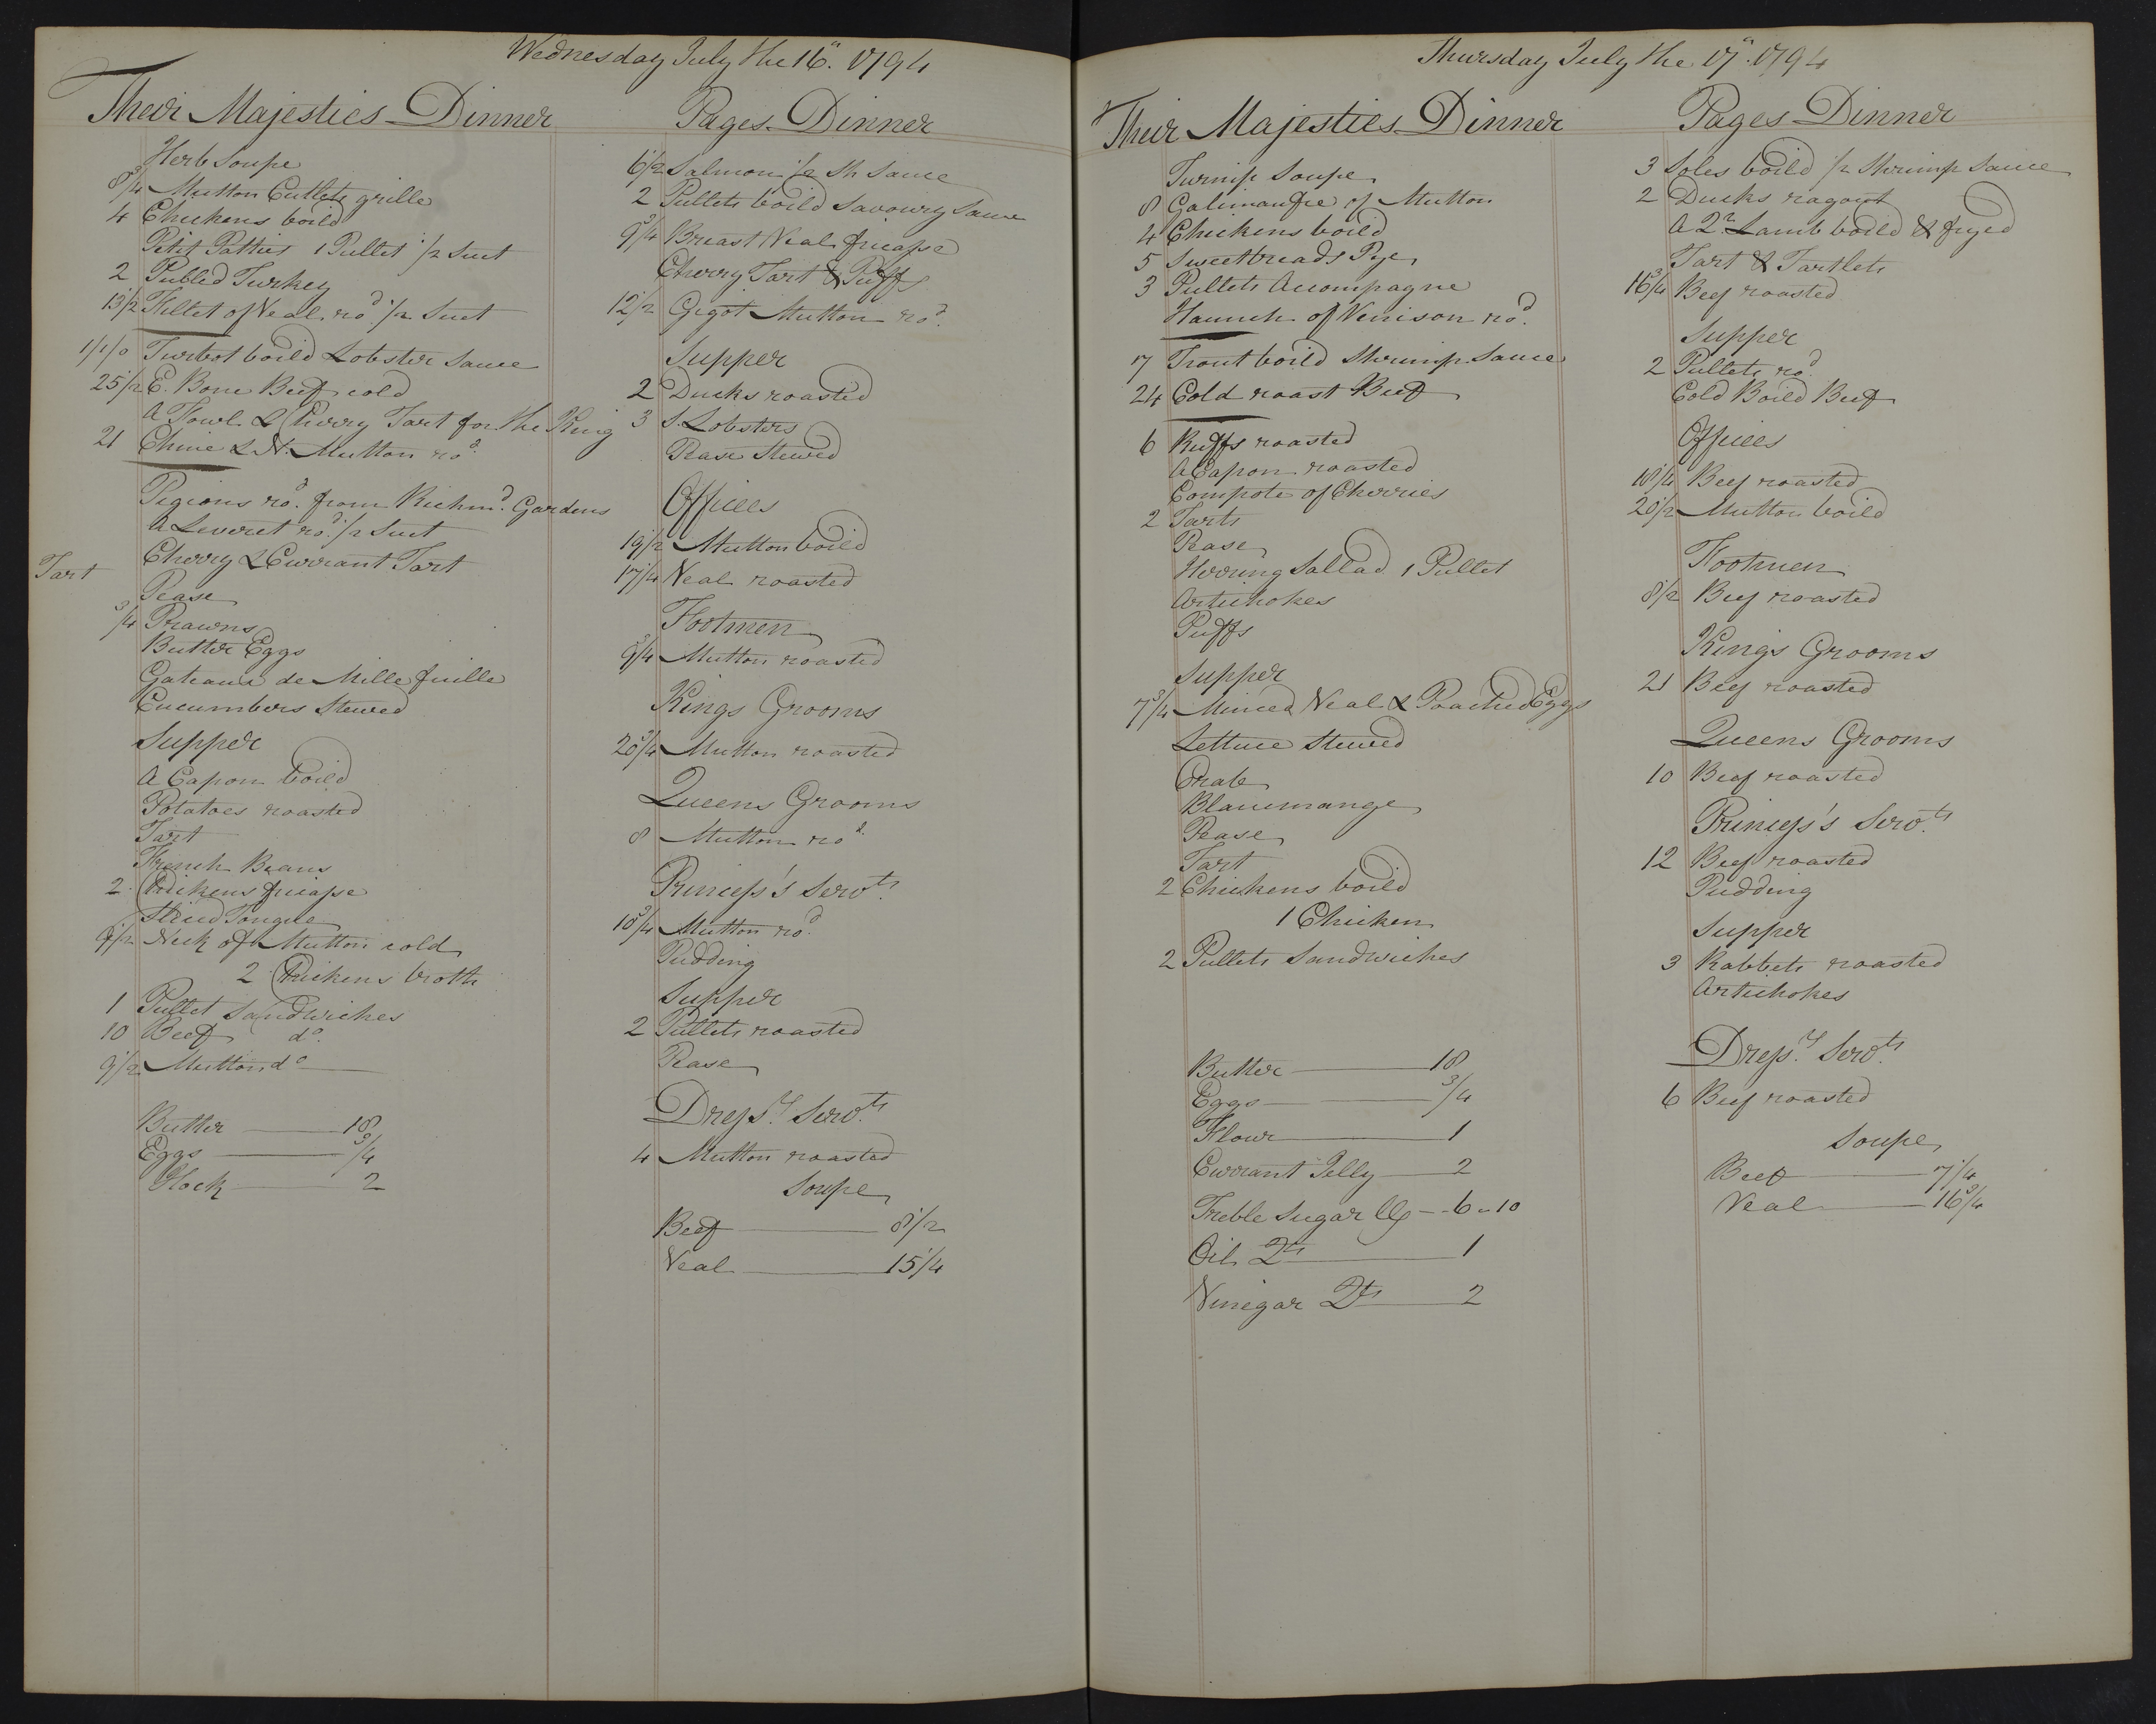 Wednesday July the 16th. 1794
Their Majesties Dinner
Herb Soupe
8 3/4 Mutton Cutlets grille
4 Chickens boild
Petit Patties 1 Pullet 1/2 Suet
2 Pulled Turkey
13 1/2 Fillet of Veal. rod 1/2 Suet
1/1/0 Turbot boild Lobster Sauce
25 1/2 E. Bone Beef cold
A Fowl & Cherry Tart for the King
21 Chine & N. Mutton rod
Pigions rod. from Richmd. Gardens
A Leveret rod. 1/2 Suet
Tart Cherry & Currant Tart
Pease
3/4 Prawns
Butter Eggs
Gateaux de Mille fuille
Cucumbers Stewed
Supper
A Capon boild
Potatoes roasted
Tart
French Beans
2 Chickens fricasse
Sliced Tongue
9 1/2 Neck of Mutton cold
2 Chickens broth
1 Pullet Sandwiches
10 Beef do.
9 1/2 Mutton do
Butter 18
Eggs 3/4
Hock 2
Pages Dinner
6 1/2 Salmon 1/2 Sh Sauce
2 Pullets boild Savoury Sauce
9 3/4 Breast Veal fricasse
Cherry Tart & Puffs
12 1/2 Gigot Mutton rod.
Supper
2 Ducks roasted
3 S. Lobsters
Pease Stewed
Offices
19 1/2 Mutton boild
17 1/4 Veal roasted
Footmen
9 3/4 Mutton roasted
Kings Grooms
20 3/4 Mutton roasted
Queens Grooms
8 Mutton rod
Princess's Servts.
10 3/4 Mutton rod.
Pudding
Supper
2 Pullets roasted
Pease
Dressrs. Servts.
4 Mutton roasted
Soupe
Beef 8 1/2
Veal 15 1/4
Thursday July the 17th. 1794
Their Majesties Dinner
Turnip Soupe
8 Galimaufre of Mutton
4 Chickens boild
5 Sweetbreads Pye
3 Pullets Accompagne
Haunch of Venison rod.
7 Trout boild Shrimp Sauce
24 Cold roast Beef
6 Ruffs roasted
A Capon roasted
Compote of Cherries
2 Tarts
Pease
Herring Sallad 1 Pullet
Artichokes
Puffs
Supper
7 3/4 Minced Veal & Poached Eggs
Lettuce Stewed
Crab
Blancmange
Pease
Tart
2 Chickens boild
1 Chicken
2 Pullets Sandwiches
Butter 18
Eggs 3/4
Flour 1
Currant Jelly 2
Treble Sugar lb - 6 - 10
Oil Qts 1
Vinegar Qts 2
Pages Dinner
3 Soles boild 1/2 Shrimp Sauce
2 Ducks ragout
A Qr. Lamb boild & fryed
Tart & Tartlets
16 3/4 Beef roasted
Supper
2 Pullets rod.
Cold Boild Beef
Offices
18 1/4 Beef roasted
20 1/2 Mutton boild
Footmen
8 1/2 Beef roasted
Kings Grooms
21 Beef roasted
Queens Grooms
10 Beef roasted
Princess's Servts.
12 Beef roasted
Pudding
Supper
3 Rabbets roasted
Artichokes
Dressrs. Servts.
6 Beef roasted
Soupe
Beef 7 1/4
Veal 16 3/4